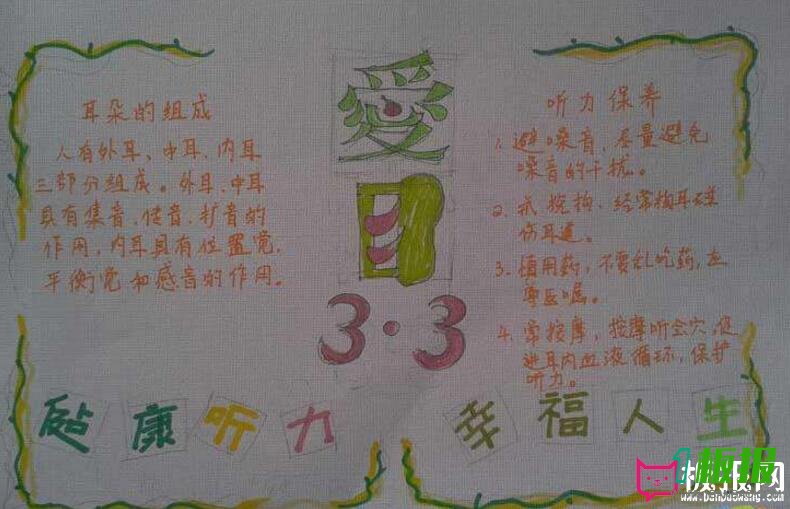 爱
日
3·3
耳朵的组成
人有外耳、中耳、内耳
三部分组成。外耳、中耳
具有集音、传音、扩音的
作用，内耳具有位置觉、
平衡觉和感音的作用。
听力保养
1. 避噪音，尽量避免
噪音的干扰。
2. 戒挖掏、经常掏耳碰
伤耳道。
3. 慎用药，不要乱吃药，应
尊医嘱。
4. 常按摩，按摩听会穴，促
进耳内血液循环，保护
听力。
健康听力
幸福人生
板报
板报网
www.banbaowang.com